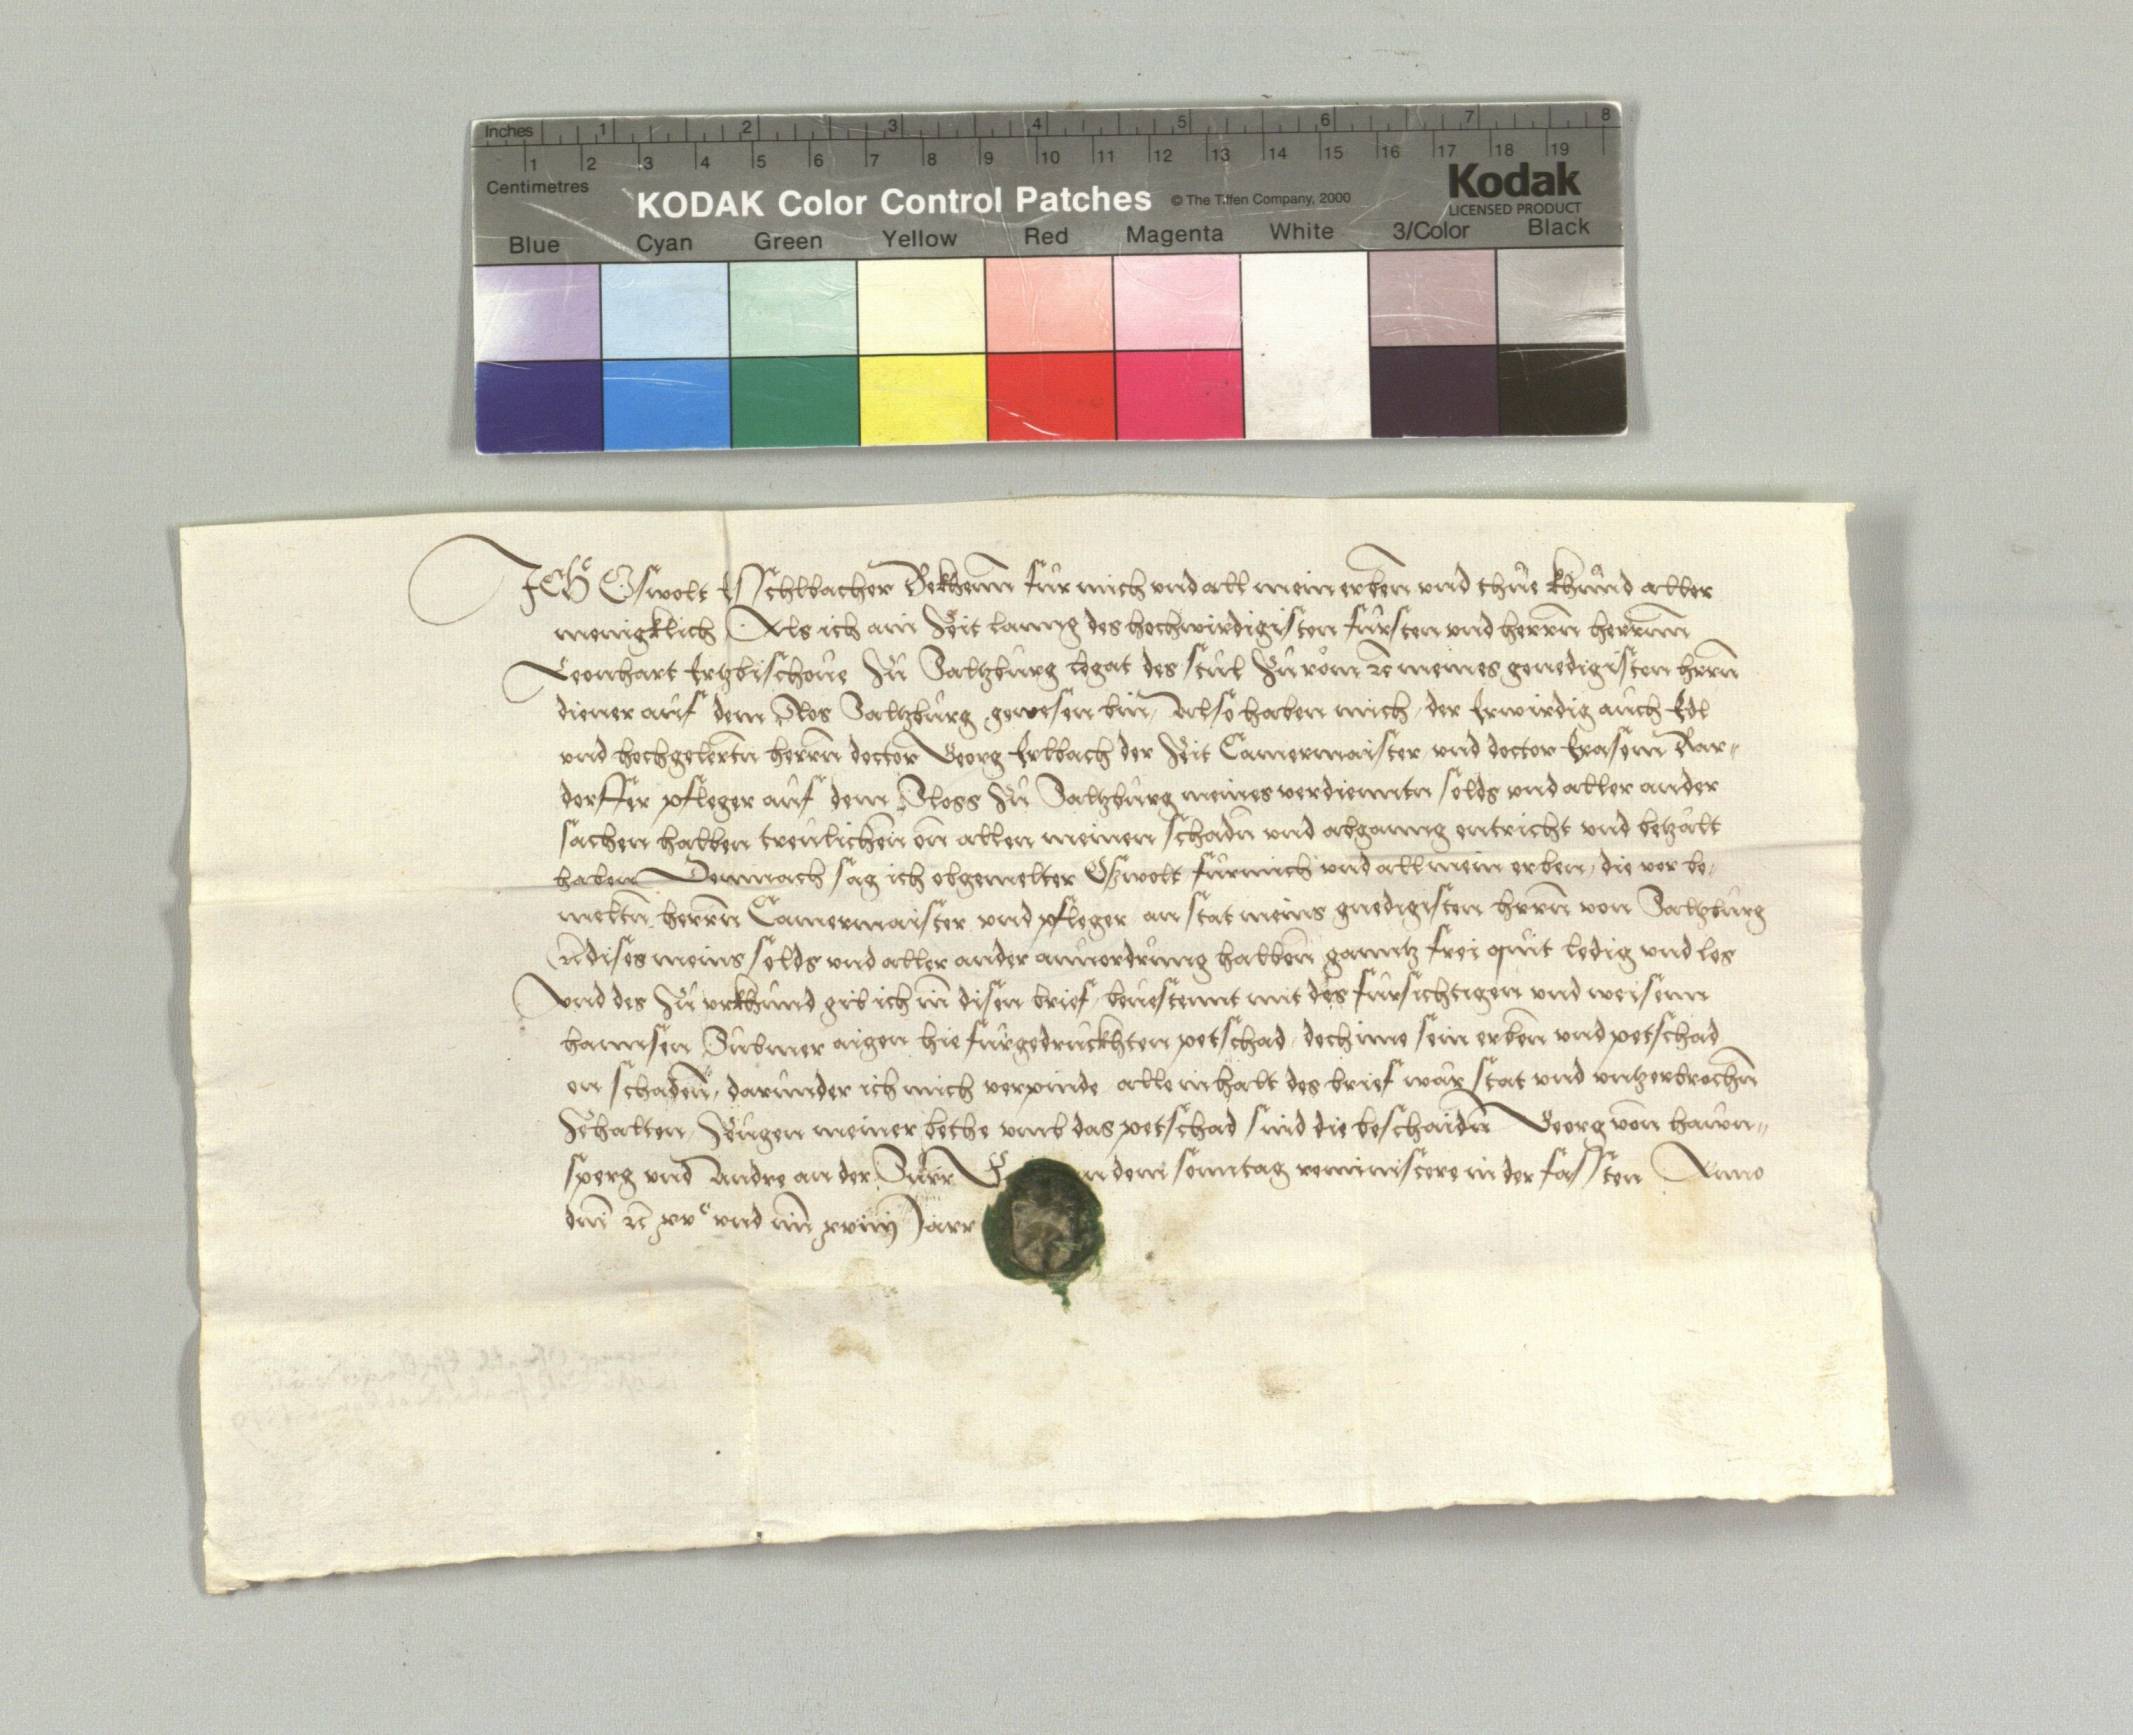 Inches 1 2 3 4 5 6 7 8
1 2 3 4 5 6 7 8 9 10 11 12 13 14 15 16 17 18 19
Centimetres
KODAK Color Control Patches © The Tiffen Company, 2000 Kodak
LICENSED PRODUCT
Blue Cyan Green Yellow Red Magenta White 3/Color Black
Ich Oswolt Eschlbacher Bekhenn für mich vnd all mein erben vnd thue khund aller
menigklich Als ich ain Zeit lanng des hochwirdigisten fürsten vnd herrn herrnn
Leonhart Ertzbischoue Zu Saltzburg legat des stul Zu rom ꝛc meines genedigisten hrrn
diener auf dem Slos Saltzburg gewesen bin, Also haben mich der Erwirdig auch Edl
vnd hochgelertn herrn doctor Georg Erlbach der Zeit Camermaister vnd doctor Erasem Rar-
dorffer pfleger auf dem Sloss Zu Saltzburg meines verdienntn solds vnd aller ander
sachen halben treulichen on allen meinen schadn vnd abganng entricht vnd betzalt
haben Demnach sag ich obgemelter Oswolt für mich vnd all mein erben, die vor be-
meltn herrn Camermaister vnd pfleger an stat meins gnedigisten hrrn von Saltzburg
dises meins solds vnd aller ander anuordrung halben ganntz frei quit ledig vnd los
Vnd des Zu vrkhund gib ich in disen brief beuestennt mit des fürsichtigen vnd weisenn
hannsen aigen hie fürgedruckhten petschad doch ime sein erben vnd petschad
on schaden, darunder ich mich verpinde alle inhalt des brief war stat vnd vntzerbrochn
Zehalten, Zeugen meiner bethe vmb das petschad sind die beschaidn Georg von haun-
sperg vnd Andre an der dem sonntag reminiscere in der fassten Anno
dni ꝛc xvc vnd im xviiij Jarr